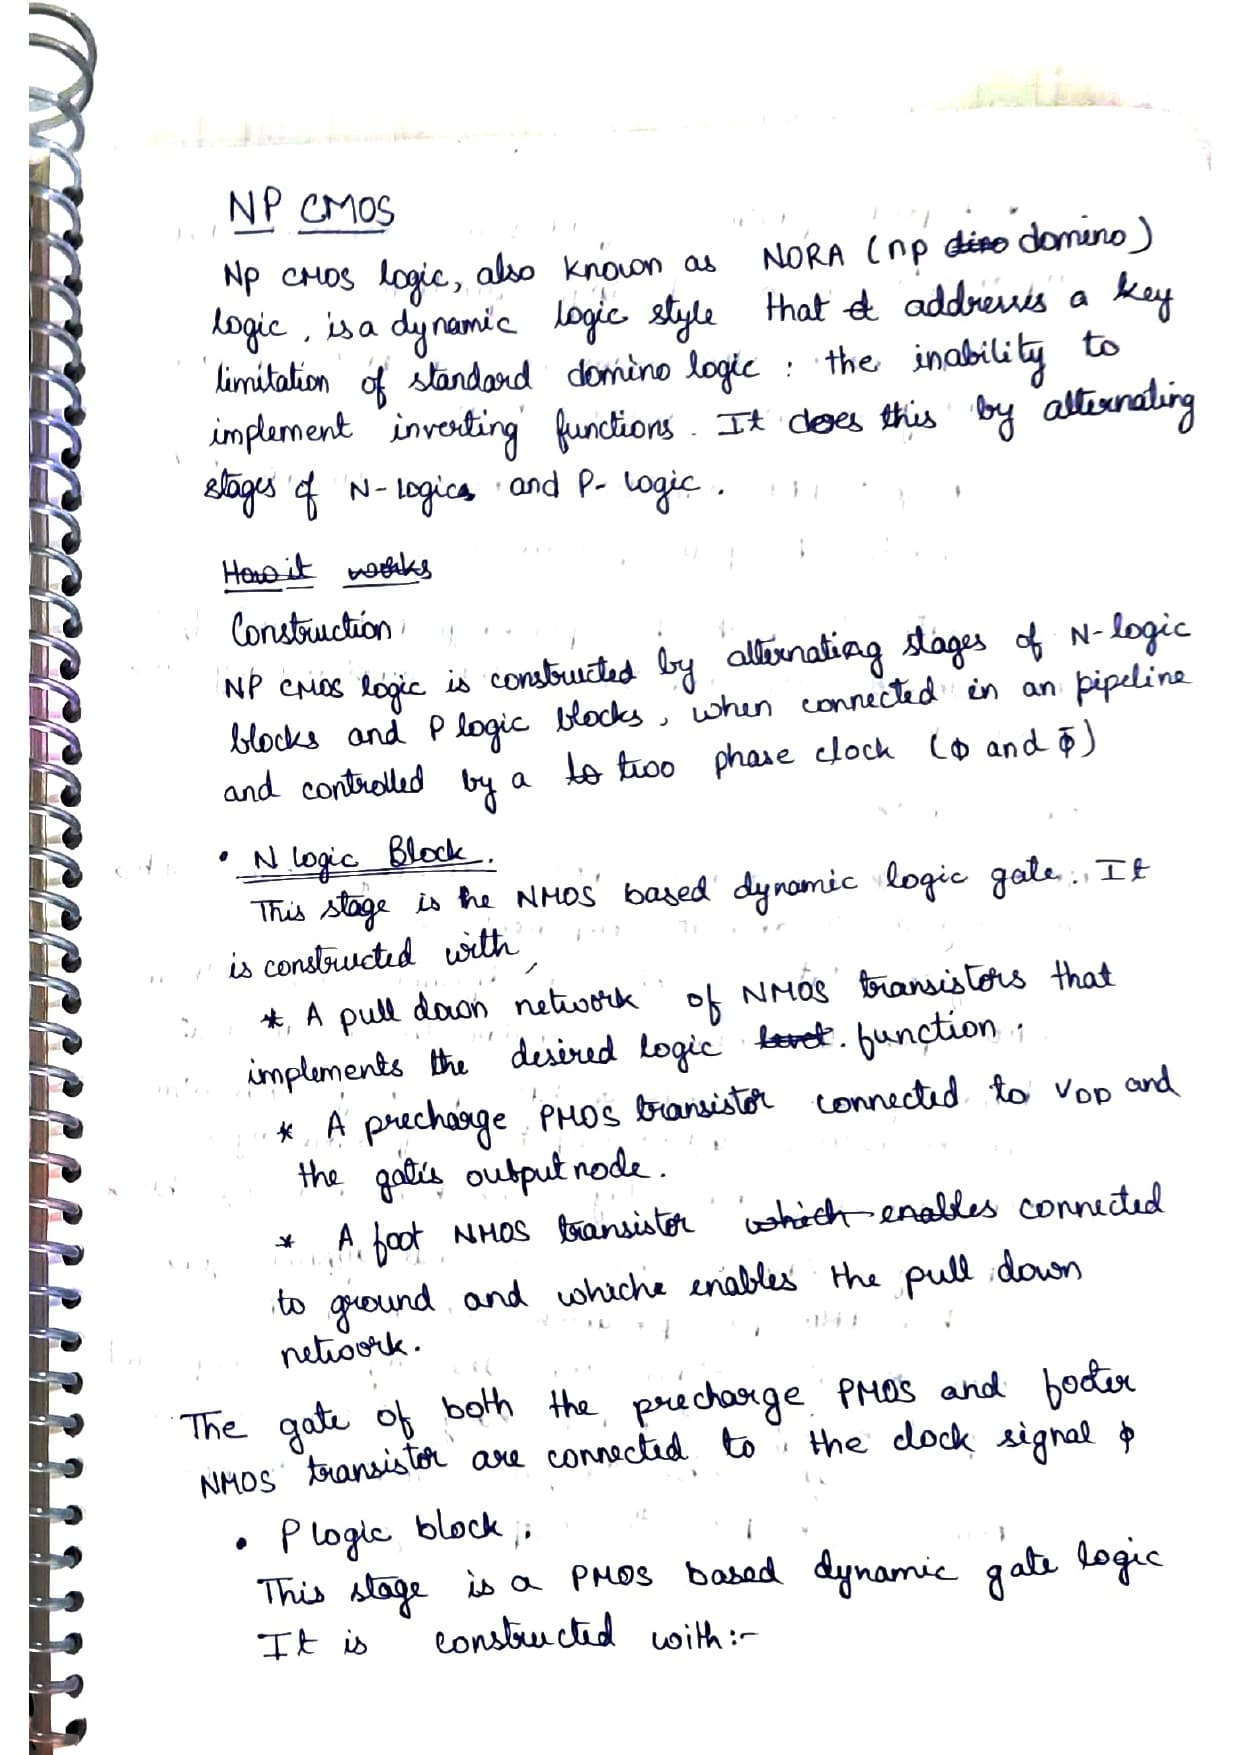 NP CMOS
Np CMOS logic, also known as NORA (np dino domino)
logic, is a dynamic logic style that d addresses a key
limitation of standard domino logic : the inability to
implement inverting functions. It does this by alternating
stages of N-logics and P- logic.
How it works
Construction
NP CMOS logic is constructed by alternating stages of N-logic
blocks and P logic blocks, when connected in an pipeline
and controlled by a to two phase clock (ϕ and ϕ̄)
• N logic Block.
This stage is the NMOS based dynamic logic gate. It
is constructed with,
* A pull down network of NMOS transistors that
implements the desired logic level. function.
* A precharge PMOS transistor connected to VDD and
the gate's output node.
* A foot NMOS transistor which enables connected
to ground and whiche enables the pull down
network.
The gate of both the precharge PMOS and footer
NMOS transistor are connected to the clock signal ϕ
• P logic block.
This stage is a PMOS based dynamic gate logic
It is constructed with:-